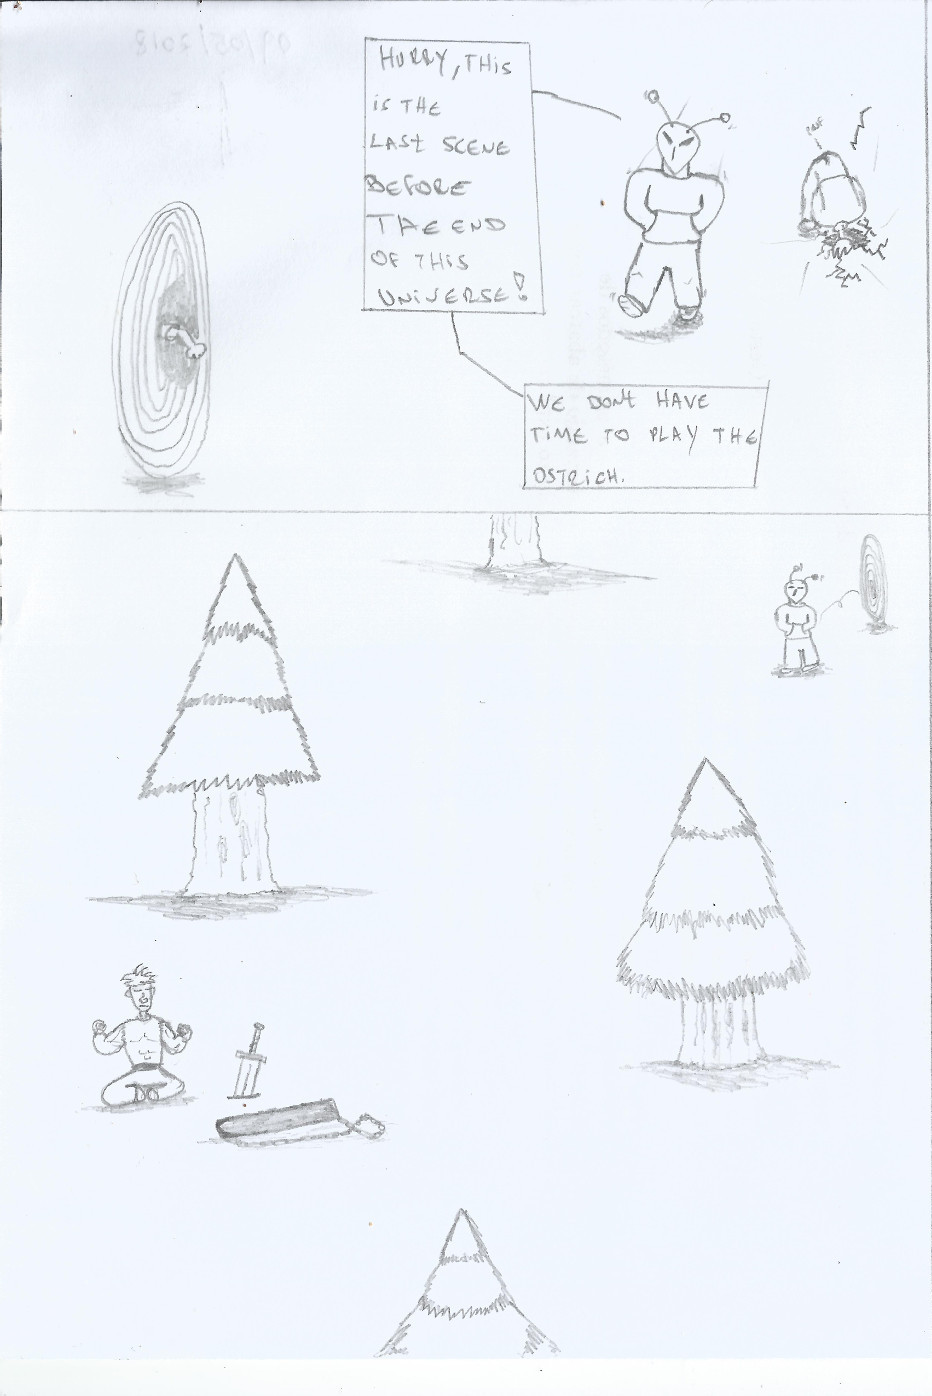 HURRY, THiS
iS THE
LASt SCENE
BEFORE
THE END
OF THiS
UNiVERSE!
WE DONt HAVE
TiME TO PLAY THE
OSTRiCH.